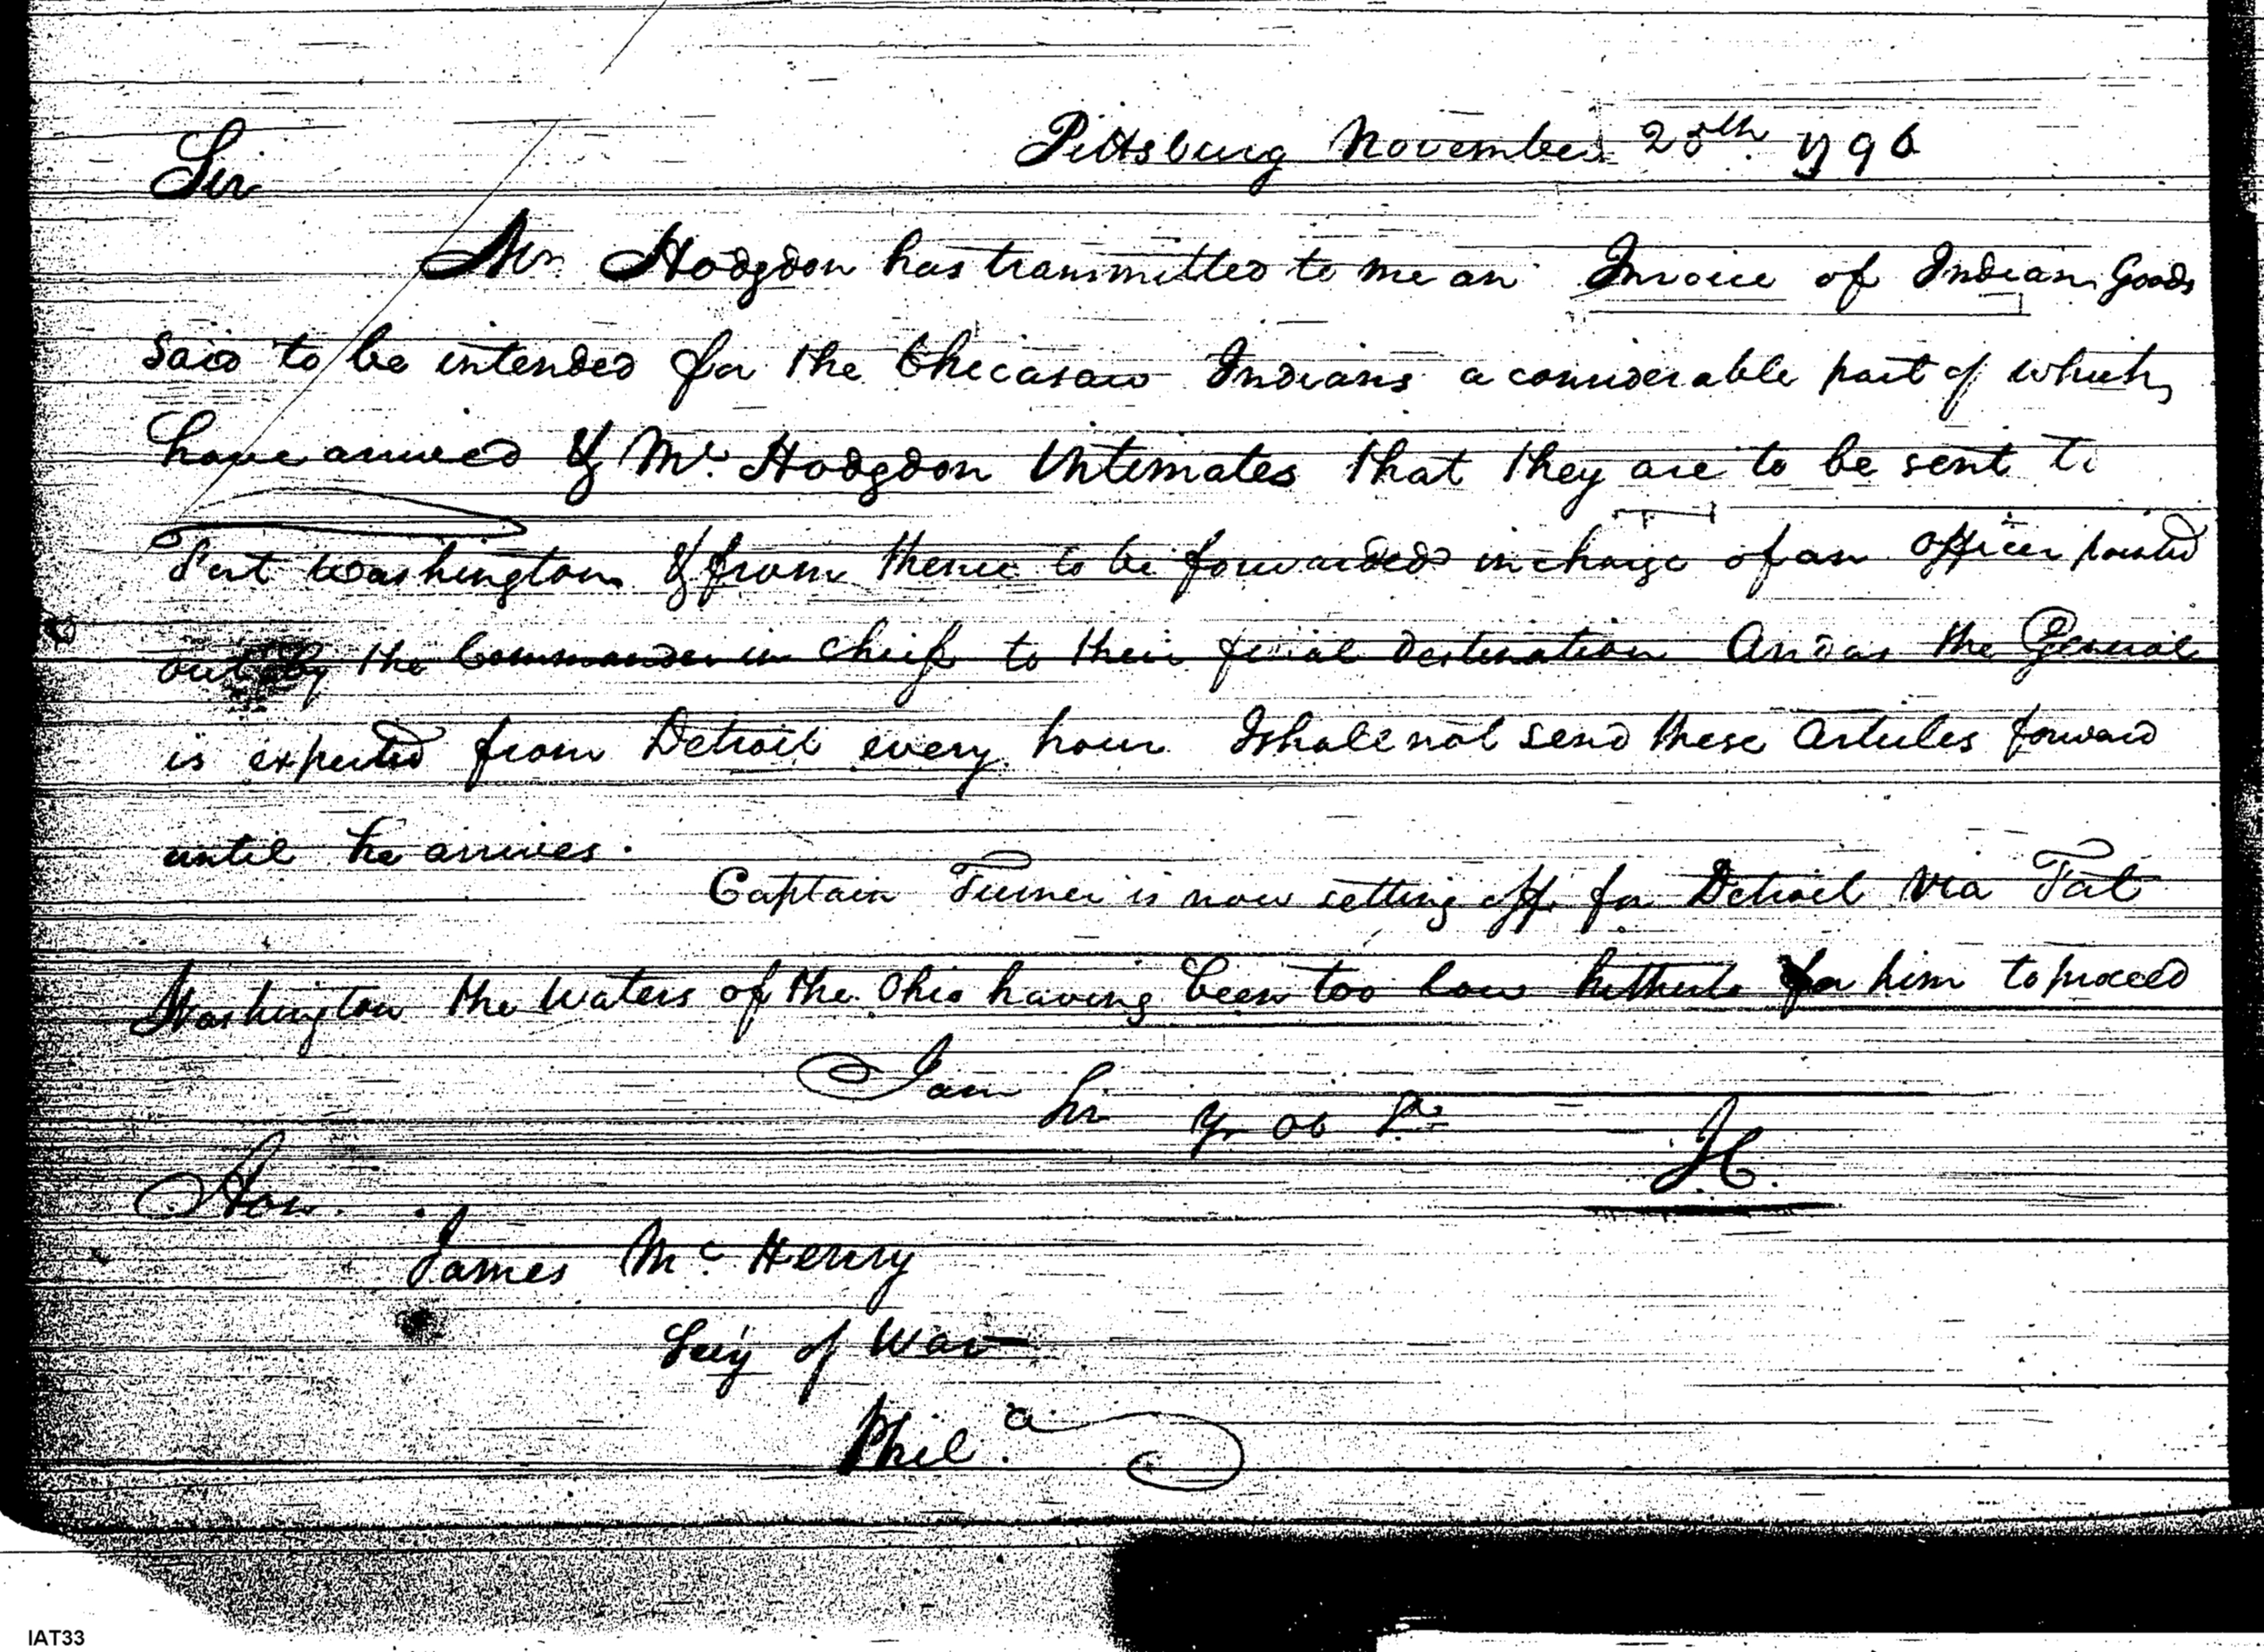 Pittsburg November 25th 1796
Sir
Mr Hodgdon has transmitted to me an Invoice of Indian Goods
said to be intended for the Chicasaw Indians a considerable part of which
have arrived & Mr. Hodgdon Intimates that they are to be sent to
Fort Washington & from thence to be forwarded in charge of an officer pointed
out by the Commander in Chief to their final destination And as the General
is expected from Detroit every hour I shall not send these Articles forward
until he arrives.
Captain Turner is now setting off for Detroit via Fort
Washington the Waters of the Ohio having been too low hitherto for him to proceed
I am Sir Yr Ob
Hon.
James Mc Henry
Secy of War
Phil.a
IAT33